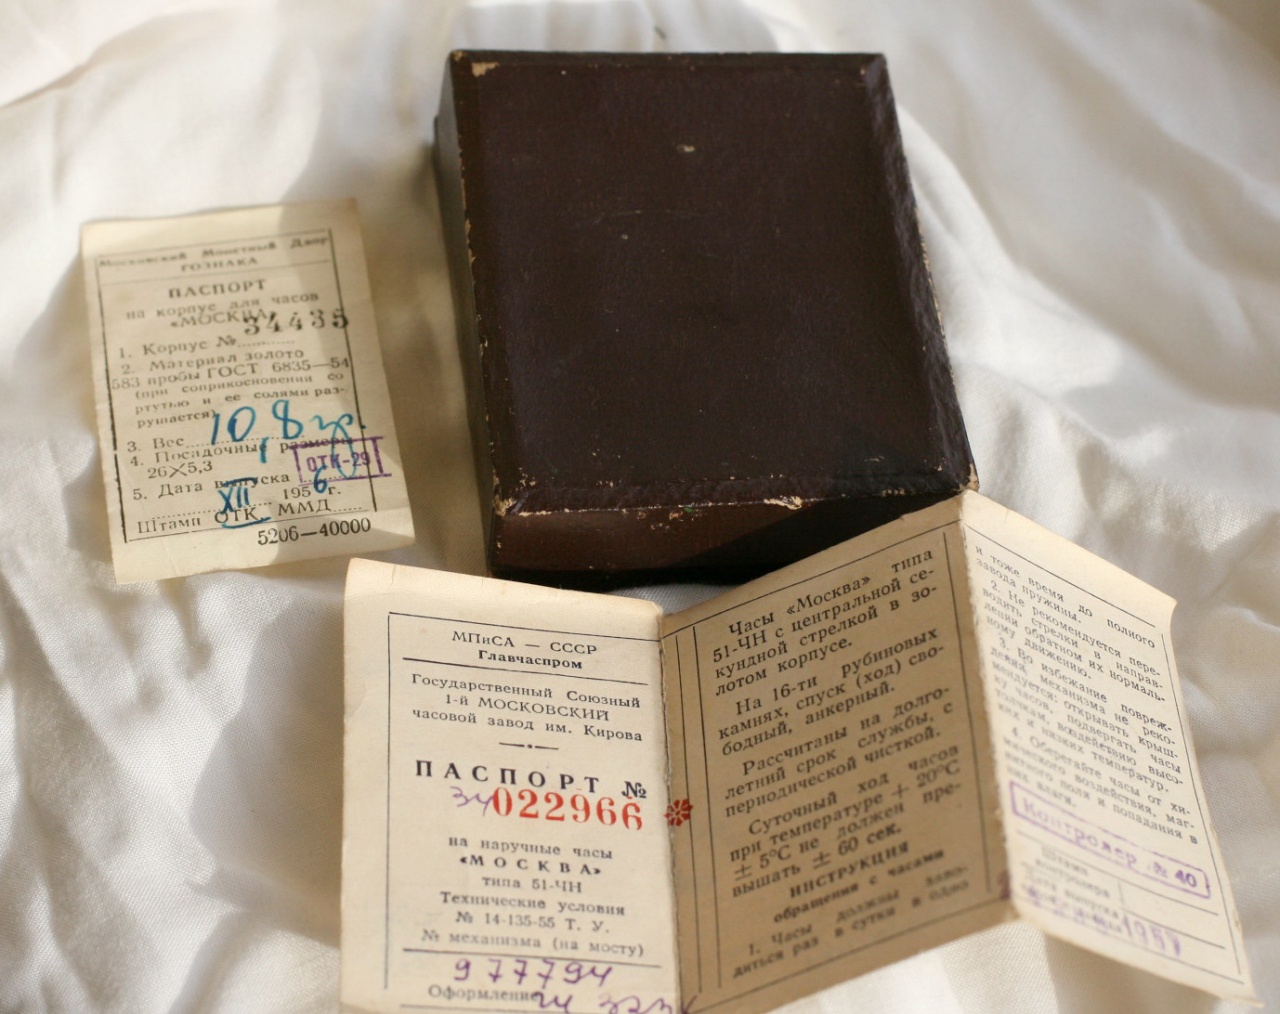 Московский Монетный Двор
ГОЗНАКА
ПАСПОРТ
на корпус для часов
«МОСКВА»
34435
1. Корпус №
2. Материал золото
583 пробы ГОСТ 6835—54
(при соприкосновении со
ртутью и ее солями раз-
рушается)
3. Вес 10,8 гр.
4. Посадочные размеры
26×5,3
ОТК-29
5. Дата выпуска
XII 1956 г.
Штамп ОТК ММД
5206—40000
МПиСА — СССР
Главчаспром
Государственный Союзный
1-й МОСКОВСКИЙ
часовой завод им. Кирова
ПАСПОРТ №
022966
на наручные часы
«МОСКВА»
типа 51-ЧН
Технические условия
№ 14-135-55 Т. У.
№ механизма (на мосту)
977794
Оформление
Часы «Москва» типа
51-ЧН с центральной се-
кундной стрелкой в зо-
лотом корпусе.
На 16-ти рубиновых
камнях, спуск (ход) сво-
бодный, анкерный.
Рассчитаны на долго-
летний срок службы, с
периодической чисткой.
Суточный ход часов
при температуре + 20°С
± 5°С не должен пре-
вышать ± 60 сек.
ИНСТРУКЦИЯ
обращения с часами
1. Часы должны заво-
диться раз в сутки в одно
и тоже время до полного
завода пружины.
2. Не рекомендуется пере-
водить стрелки в направ-
лении обратном их нормаль-
ному движению.
3. Во избежание повреж-
дений механизма не реко-
мендуется: открывать крыш-
ку часов, подвергать часы
толчкам, воздействию высо-
ких и низких температур.
4. Оберегайте часы от хи-
мического воздействия, маг-
нитного поля и попадания в
них влаги.
Контролер № 40
Штамп
контролера
Дата выпуска
1957